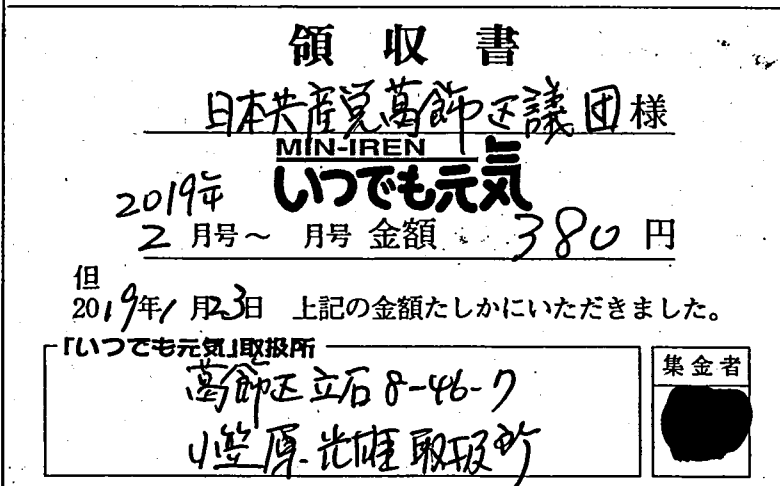 領収書
日本共産党葛飾区議団様
MIN-IREN
いつでも元気
2019年
2月号～ 月号 金額 380円
但
2019年1月23日 上記の金額たしかにいただきました。
「いつでも元気」取扱所
葛飾区立石8-46-7
小笠原光雄取扱所
集金者